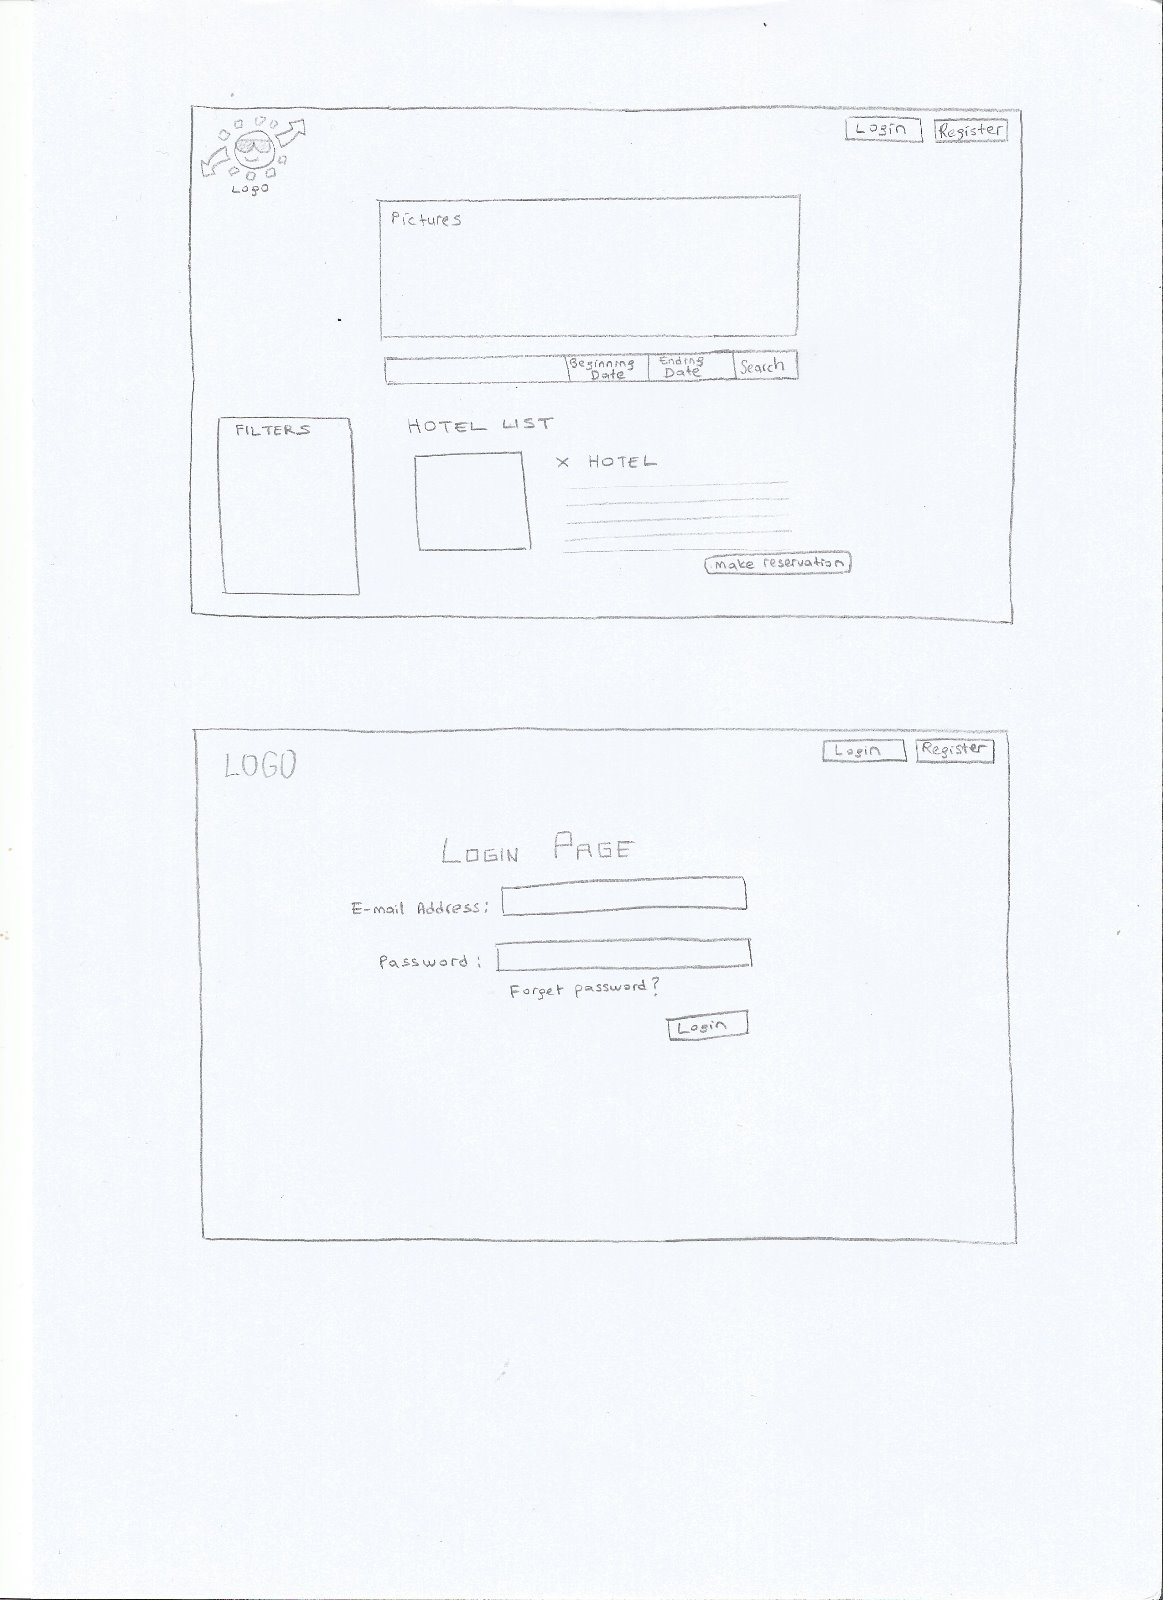 Login Register
Logo
Pictures
Beginning Date Ending Date Search
FILTERS
HOTEL LIST
X HOTEL
make reservation
LOGO
Login Register
LOGIN PAGE
E-mail Address:
Password:
Forget password?
Login